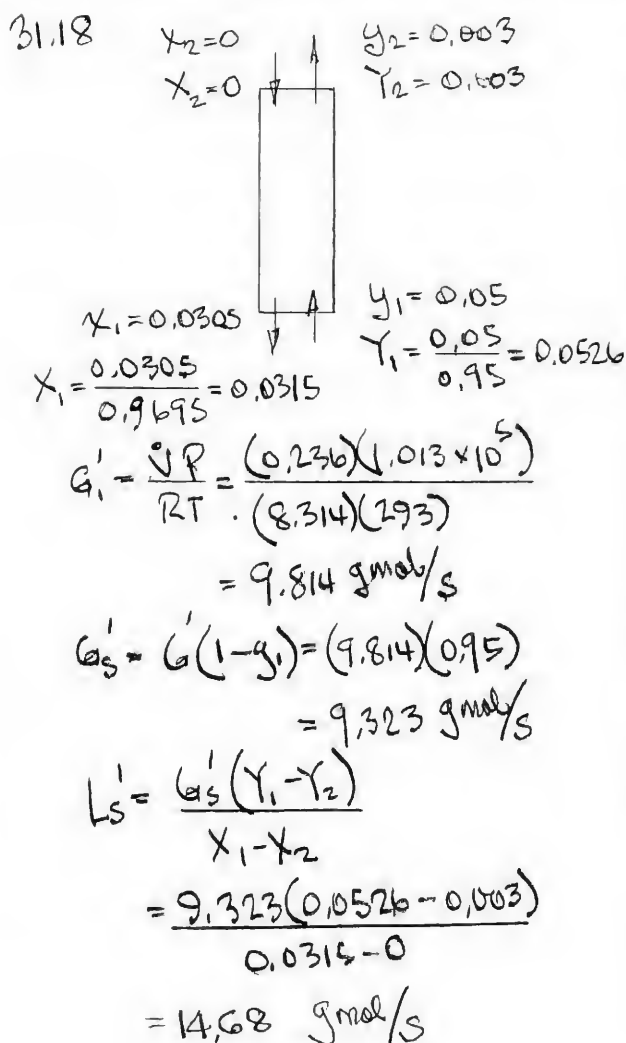 31.18
x₂=0
X₂=0
y₂=0.003
Y₂=0.003
x₁=0.0305
X₁=0.0305/0.9695=0.0315
y₁=0.05
Y₁=0.05/0.95=0.0526
G₁'=V̇P/RT=(0.236)(1.013×10⁵)/(8.314)(293)
=9.814 gmol/s
Gs'=G'(1-y₁)=(9.814)(0.95)
=9.323 gmol/s
Ls'=Gs'(Y₁-Y₂)/X₁-X₂
=9.323(0.0526-0.003)/0.0315-0
=14.68 gmol/s